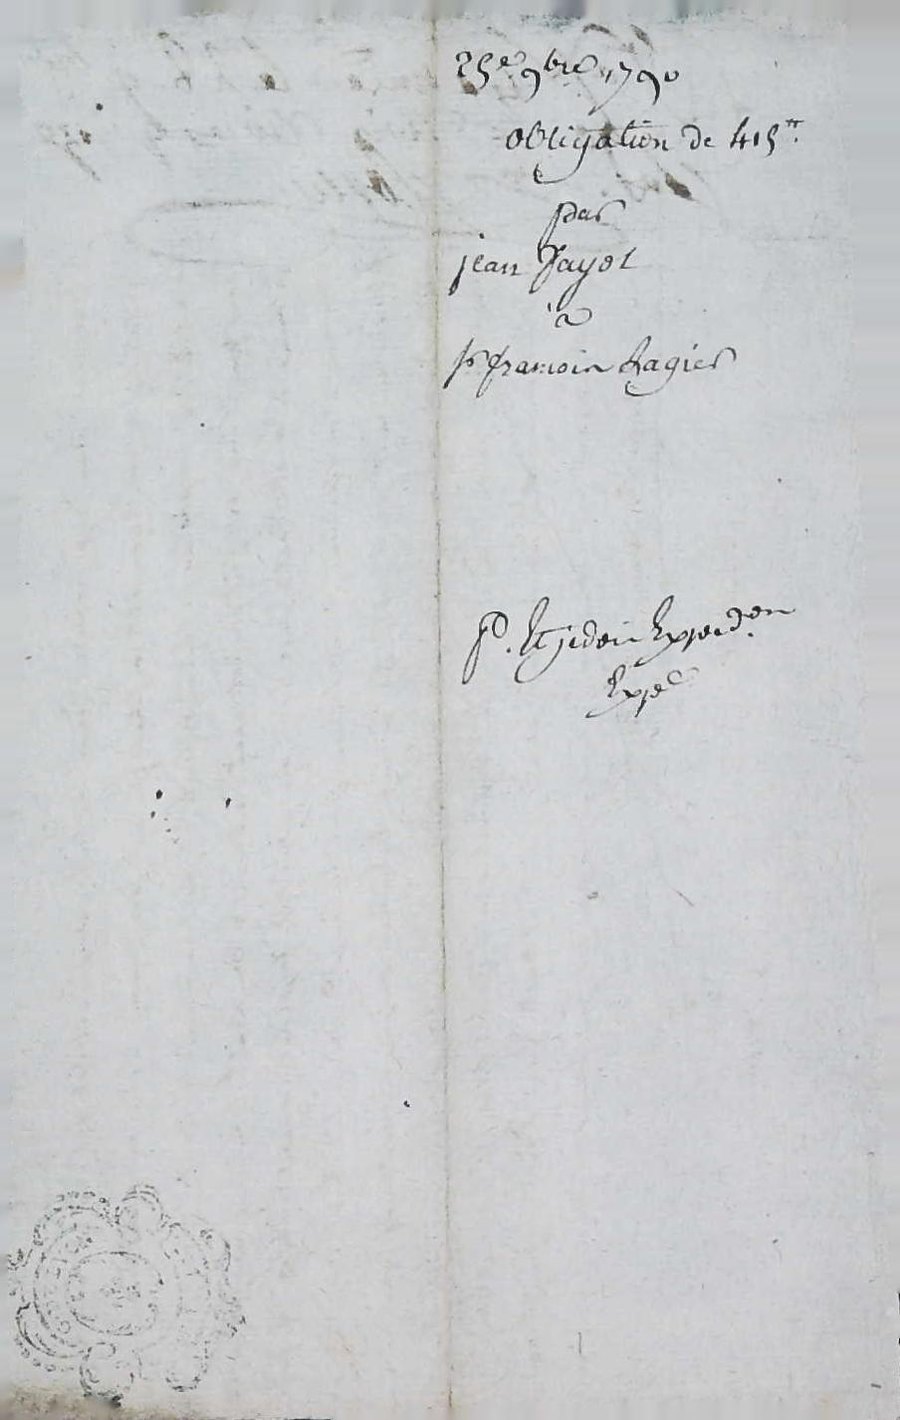 25e 9bre 1790
obligation de 415tt.
par
jean fayol
à
sr francois Ragier
Expedon
Expe